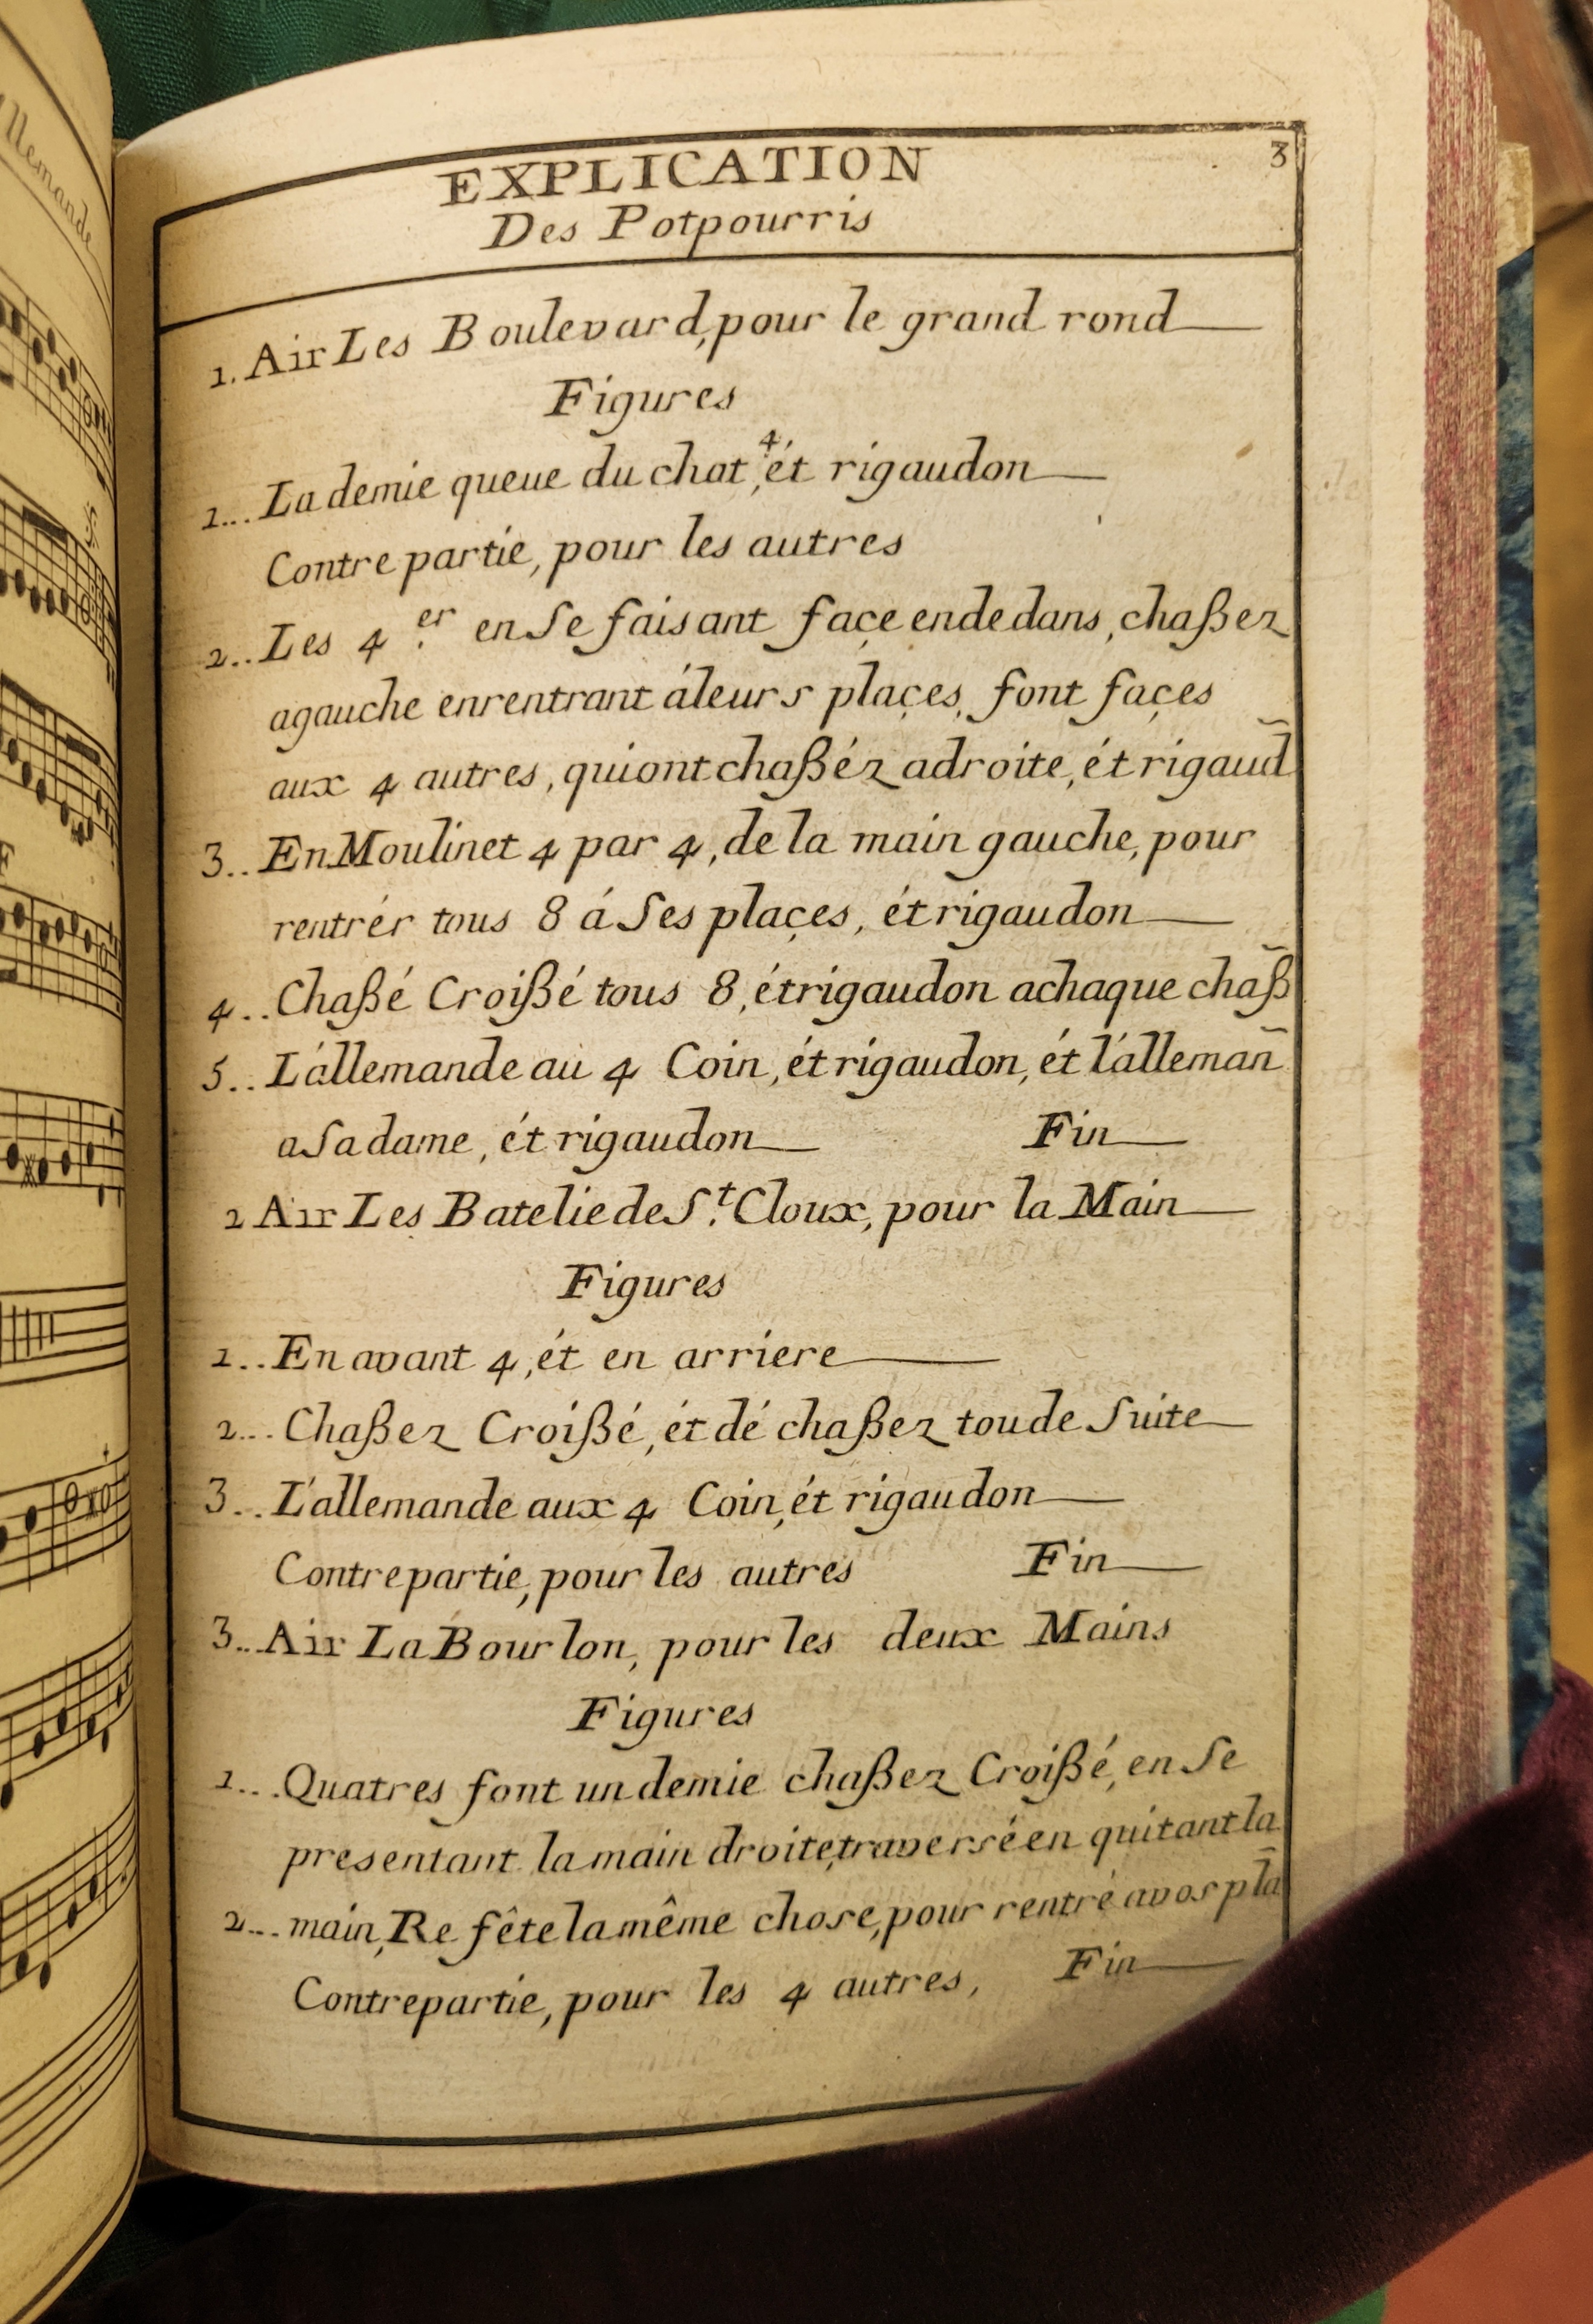 llemande
3
EXPLICATION
Des Potpourris
1. Air Les Boulevard, pour le grand rond
Figures
1... La demie queue du chat 4, ét rigaudon
Contre partie, pour les autres
2.. Les 4.er en Se faisant façe endedans, chaßez
agauche enrentrant áleurs plaçes, font façes
aux 4 autres, quiont chaßéz adroite, ét rigaud̃
3.. En Moulinet 4 par 4, de la main gauche, pour
rentrér tous 8 á Ses plaçes, ét rigaudon
4.. Chaßé Croißé tous 8, ét rigaudon achaque chaß̃
5.. L'allemande au 4 Coin, ét rigaudon, ét l'allemañ
a Sa dame, ét rigaudon Fin
2 Air Les Batelie de S.t Cloux, pour la Main
Figures
1.. En avant 4, ét en arriere
2... Chaßez Croißé, ét dé chaßez tou de Suite
3.. L'allemande aux 4 Coin, ét rigaudon
Contrepartie, pour les autres Fin
3.. Air La Bourlon, pour les deux Mains
Figures
1... Quatres font un demie chaßez Croißé, en Se
presentant la main droite, traversé en quitant la
2... main, Re fête la même chose, pour rentré avos pla͂
Contrepartie, pour les 4 autres, Fin